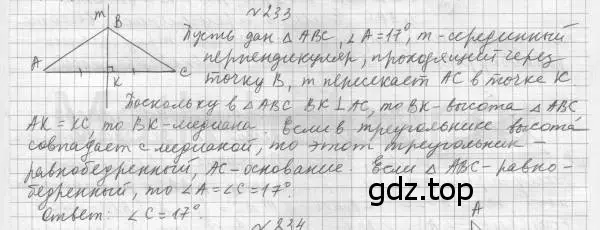 №233
m
B
A
K
C
Пусть дан △ABC, ∠A=17°, m-серединный
перпендикуляр, проходящий через
точку B, m пересекает AC в точке K
Поскольку в △ABC BK⊥AC, то BK-высота △ABC,
AK=KC, то BK-медиана. Если в треугольнике высота
совпадает с медианой, то этот треугольник-
равнобедренный, AC-основание. Если △ABC-равно-
бедренный, то ∠A=∠C=17°.
Ответ: ∠C=17°.
№234
A
gdz.top